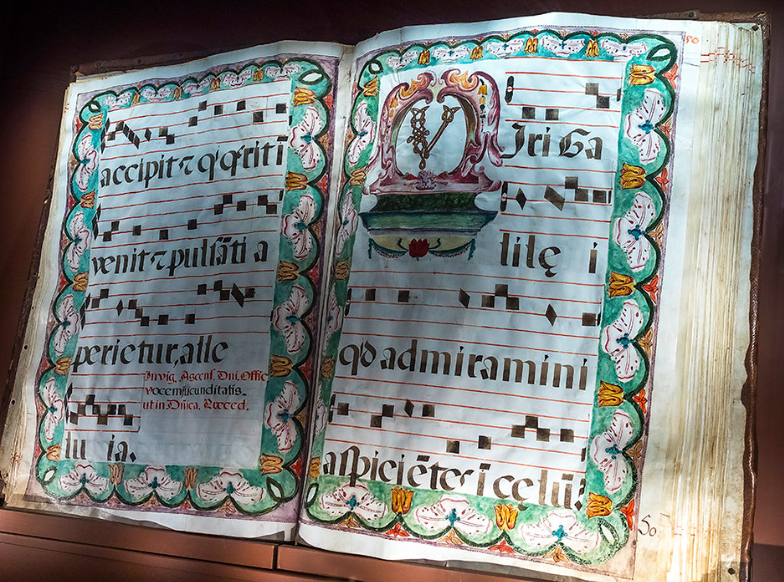 accipit ⁊ q̇ q̇riti
venit ⁊ pulsãti a
perietur, alle
In vig. Ascens. Dni. Offic.
vocem jucunditatis
ut in Dñica. Præced.
lu ia.
50
VIri Ga
lilę i
qd admiramini
aspiciẽtes ĩ cęlũ?
50